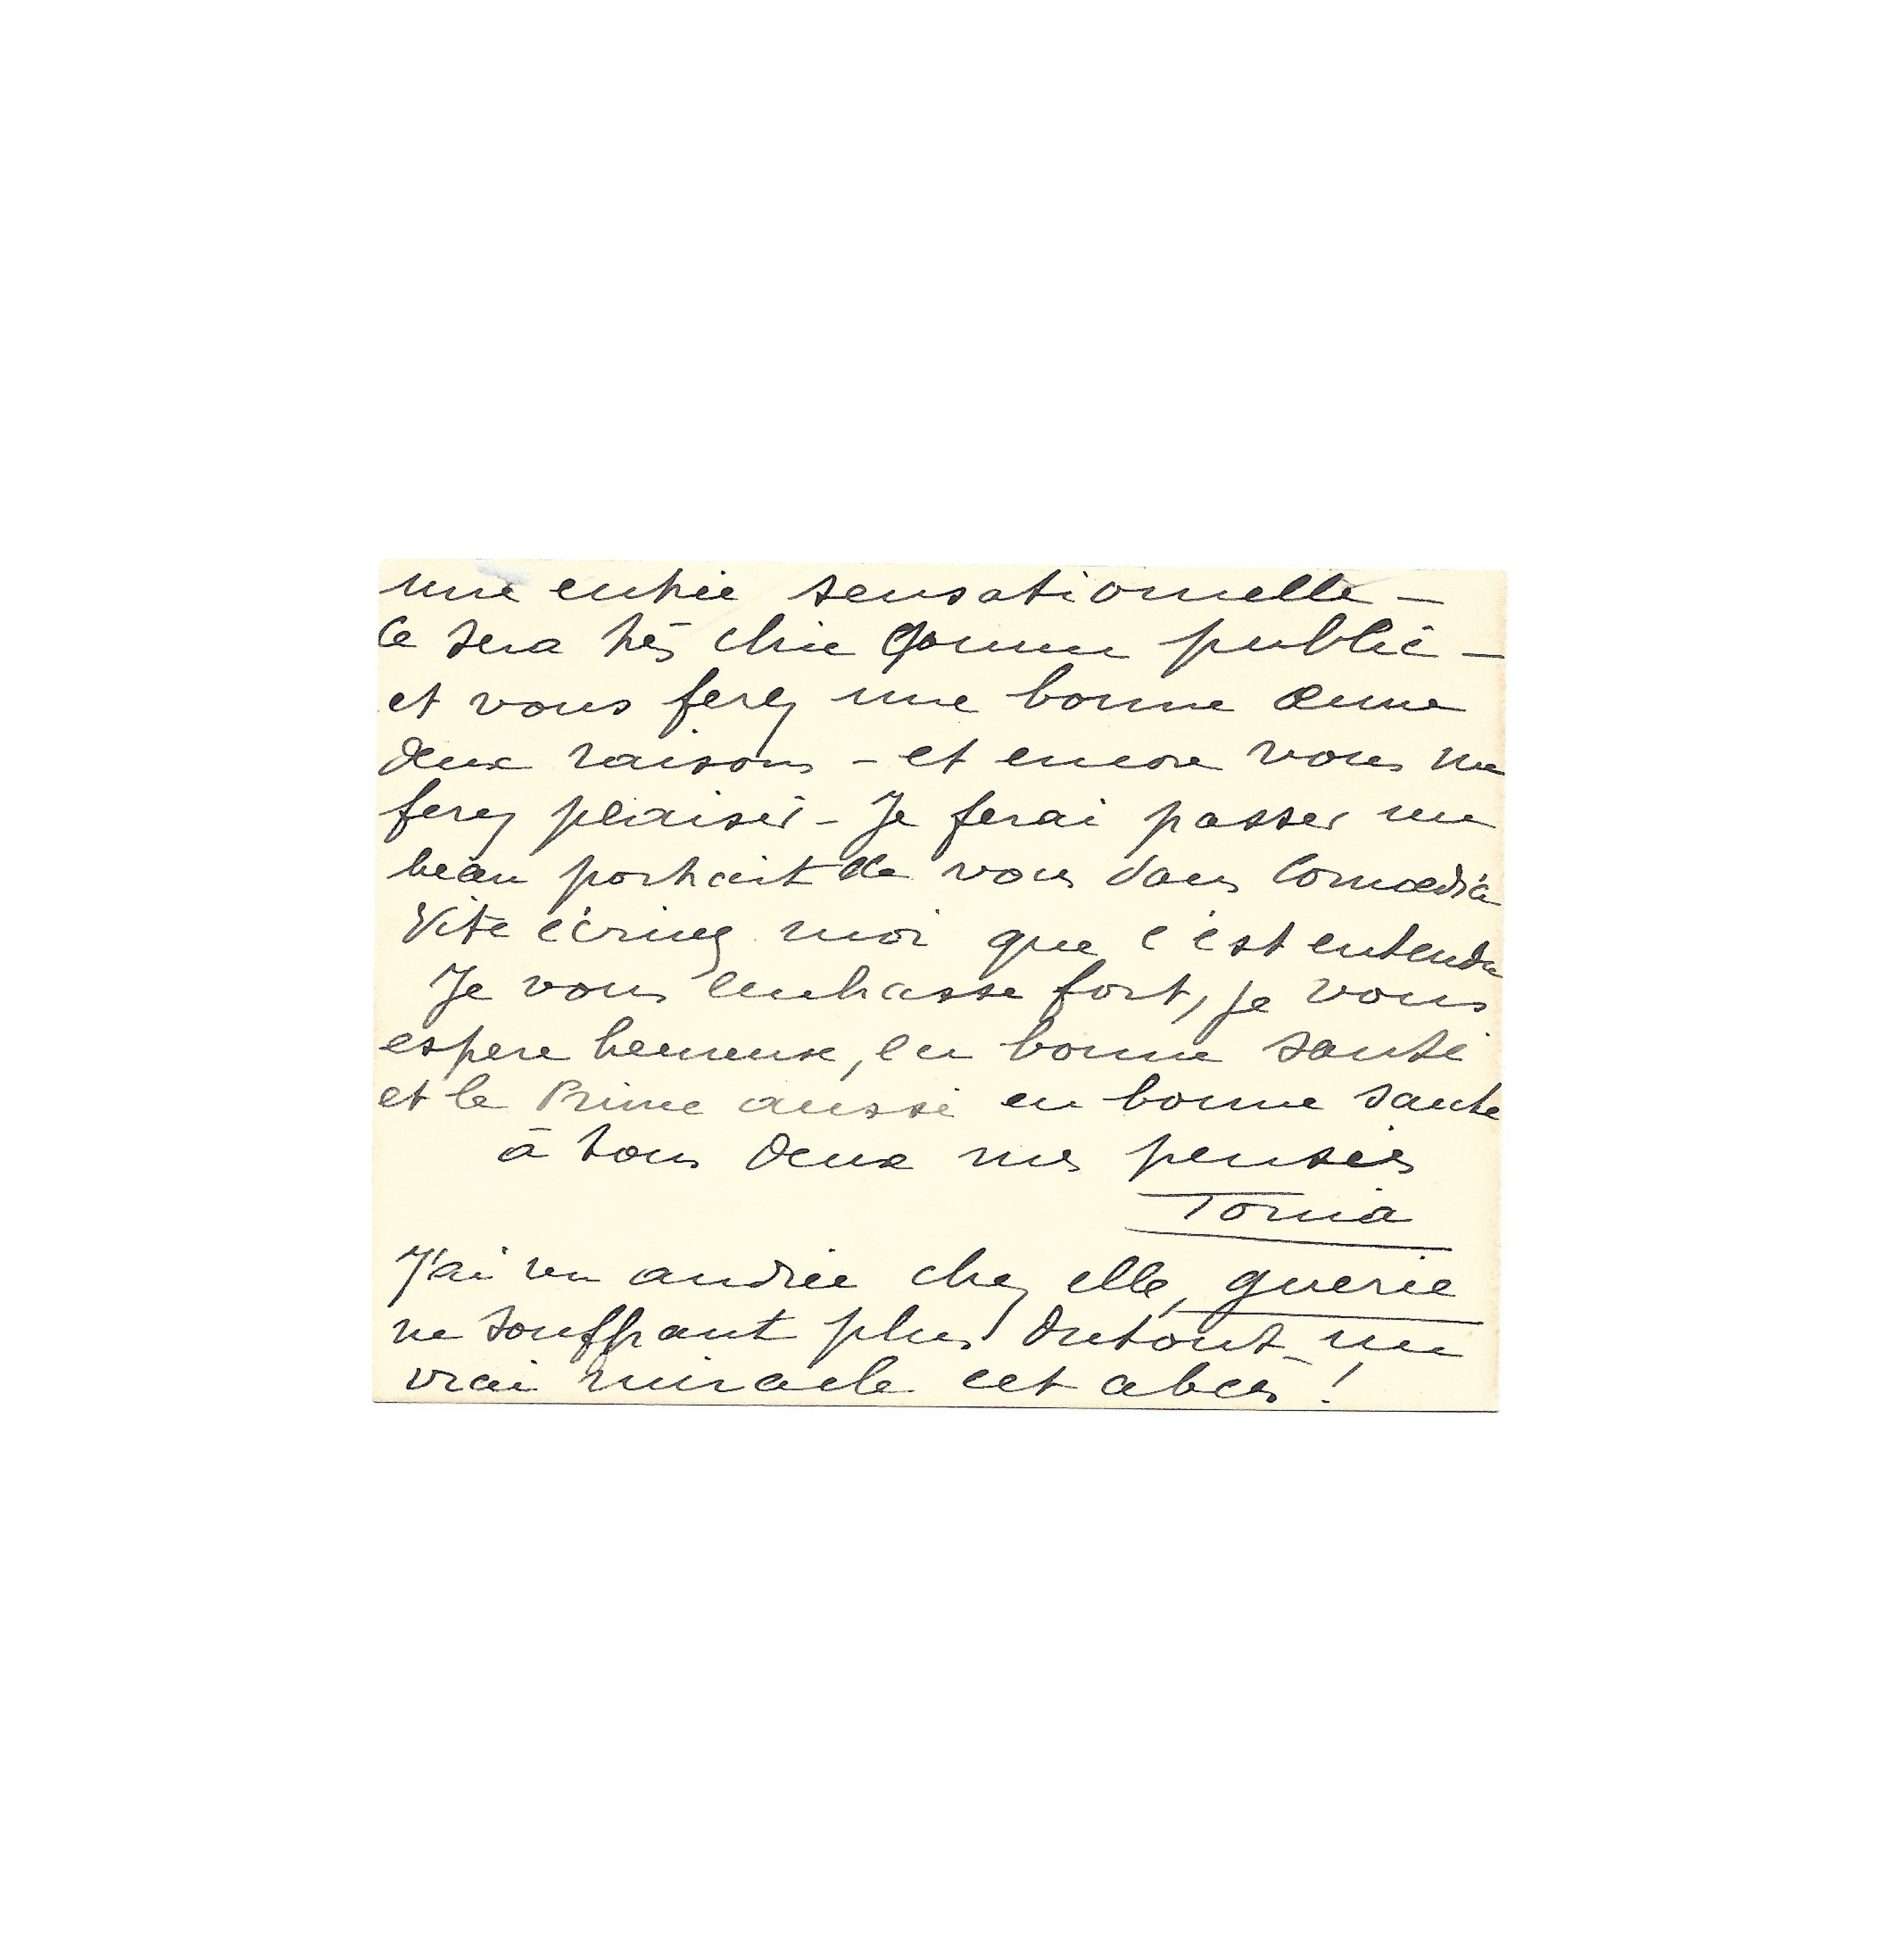 une entrée sensationelle —
ce sera très chic comme public —
et vous ferez une bonne œuvre
deux raisons - et encore vous me
ferez plaisir - Je ferai passer un
beau portrait de vous dans Comœdia
Vite écrivez moi que c'est entendu
Je vous embrasse fort, je vous
espere heureuse, en bonne santé
et le Prince aussi en bonne santé
à tous deux mes pensées
Tonia
J'ai vu andrée chez elle, guerie
ne souffrant plus dutout - un
vrai miracle cet abcès !